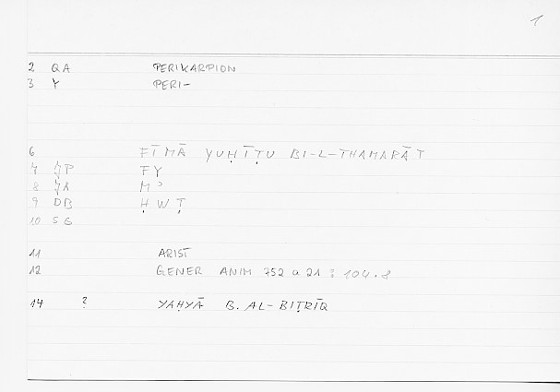 1
2 QA PERIKARPION
3 Y PERI-
6 FĪ MĀ YUḤĪṬU BI-L-THAMARĀT
7 FY
8 Mʾ
9 DB ḤWṬ
10 SG
11 ARIST
12 GENER ANIM 752 a 21 : 104.8
14 ? YAḤYĀ B. AL-BIṬRĪQ